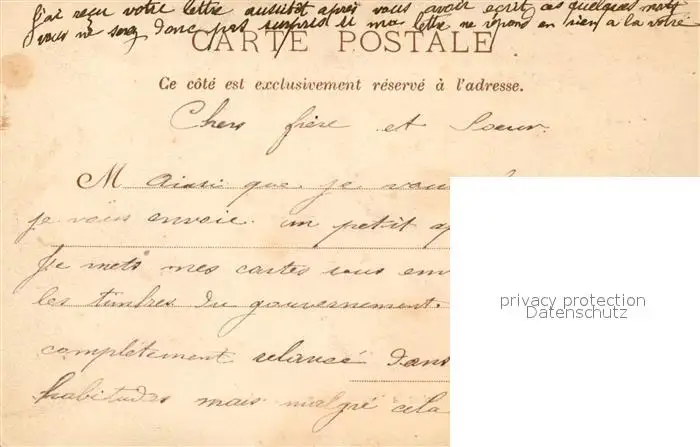 J'ai reçu votre lettre aussitôt après vous avoir écrit ces quelques mots
vous ne serez donc pas surpris si ma lettre ne répond en rien a la votre
CARTE POSTALE
Ce côté est exclusivement réservé à l'adresse.
Chers frère et Soeur.
M Ainsi que je vous
je vous envoie un petit
Je mets mes cartes sous
les timbres du gouvernement.
complètement relancé dans
habitudes mais malgré cela
privacy protection
Datenschutz